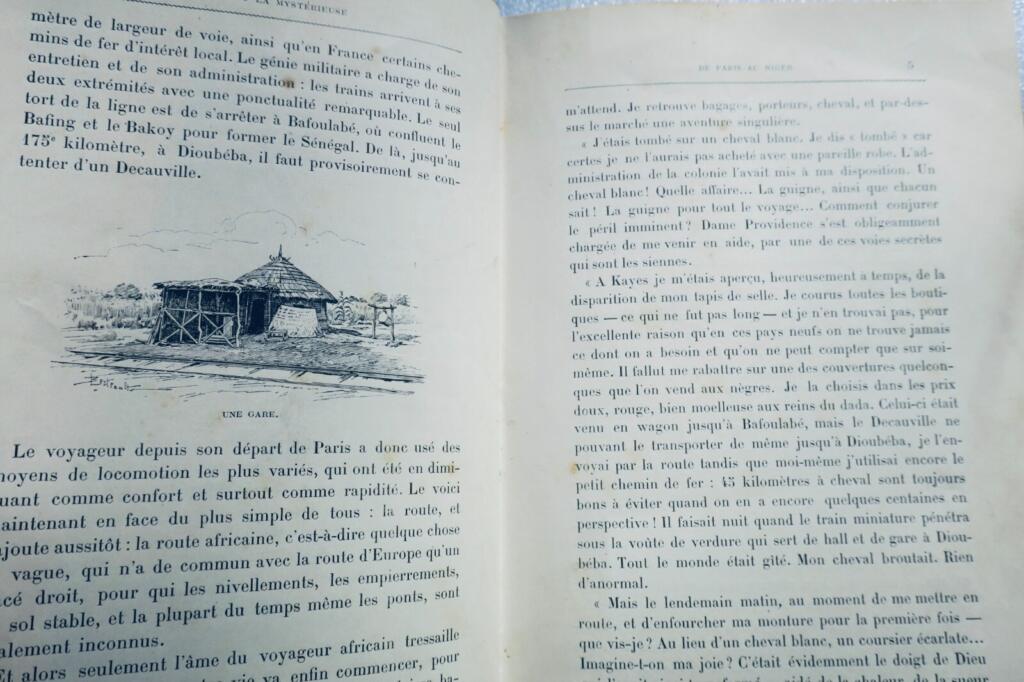 LA MYSTÉRIEUSE
mètre de largeur de voie, ainsi qu'en France certains che-
mins de fer d'intérêt local. Le génie militaire a charge de son
entretien et de son administration : les trains arrivent à ses
deux extrémités avec une ponctualité remarquable. Le seul
tort de la ligne est de s'arrêter à Bafoulabé, où confluent le
Bafing et le Bakoy pour former le Sénégal. De là, jusqu'au
175e kilomètre, à Dioubéba, il faut provisoirement se con-
tenter d'un Decauville.
UNE GARE.
Le voyageur depuis son départ de Paris a donc usé des
moyens de locomotion les plus variés, qui ont été en dimi-
nuant comme confort et surtout comme rapidité. Le voici
maintenant en face du plus simple de tous : la route, et
ajoute aussitôt : la route africaine, c'est-à-dire quelque chose
vague, qui n'a de commun avec la route d'Europe qu'un
cé droit, pour qui les nivellements, les empierrements,
sol stable, et la plupart du temps même les ponts, sont
alement inconnus.
Et alors seulement l'âme du voyageur africain tressaille
va enfin commencer, pour
DE PARIS AU NIGER 5
m'attend. Je retrouve bagages, porteurs, cheval, et par-des-
sus le marché une aventure singulière.
« J'étais tombé sur un cheval blanc. Je dis « tombé » car
certes je ne l'aurais pas acheté avec une pareille robe. L'ad-
ministration de la colonie l'avait mis à ma disposition. Un
cheval blanc ! Quelle affaire... La guigne, ainsi que chacun
sait ! La guigne pour tout le voyage... Comment conjurer
le péril imminent ? Dame Providence s'est obligeamment
chargée de me venir en aide, par une de ces voies secrètes
qui sont les siennes.
« A Kayes je m'étais aperçu, heureusement à temps, de la
disparition de mon tapis de selle. Je courus toutes les bouti-
ques — ce qui ne fut pas long — et je n'en trouvai pas, pour
l'excellente raison qu'en ces pays neufs on ne trouve jamais
ce dont on a besoin et qu'on ne peut compter que sur soi-
même. Il fallut me rabattre sur une des couvertures quelcon-
ques que l'on vend aux nègres. Je la choisis dans les prix
doux, rouge, bien moelleuse aux reins du dada. Celui-ci était
venu en wagon jusqu'à Bafoulabé, mais le Decauville ne
pouvant le transporter de même jusqu'à Dioubéba, je l'en-
voyai par la route tandis que moi-même j'utilisai encore le
petit chemin de fer : 45 kilomètres à cheval sont toujours
bons à éviter quand on en a encore quelques centaines en
perspective ! Il faisait nuit quand le train miniature pénétra
sous la voûte de verdure qui sert de hall et de gare à Diou-
béba. Tout le monde était gîté. Mon cheval broutait. Rien
d'anormal.
« Mais le lendemain matin, au moment de me mettre en
route, et d'enfourcher ma monture pour la première fois —
que vis-je ? Au lieu d'un cheval blanc, un coursier écarlate...
Imagine-t-on ma joie ? C'était évidemment le doigt de Dieu
aidé de la chaleur, de la sueur